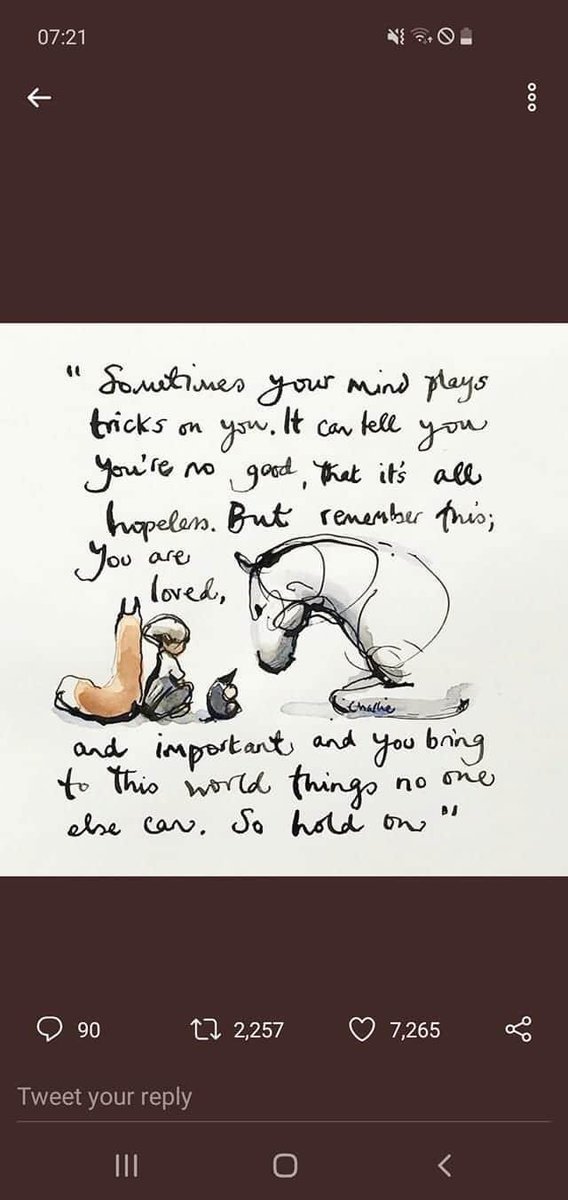 07:21
" Sometimes your mind plays
tricks on you. It can tell you
you're no good, that it's all
hopeless. But remember this;
You are
loved,
Charlie
and important and you bring
to this world things no one
else can. So hold on "
90 2,257 7,265
Tweet your reply